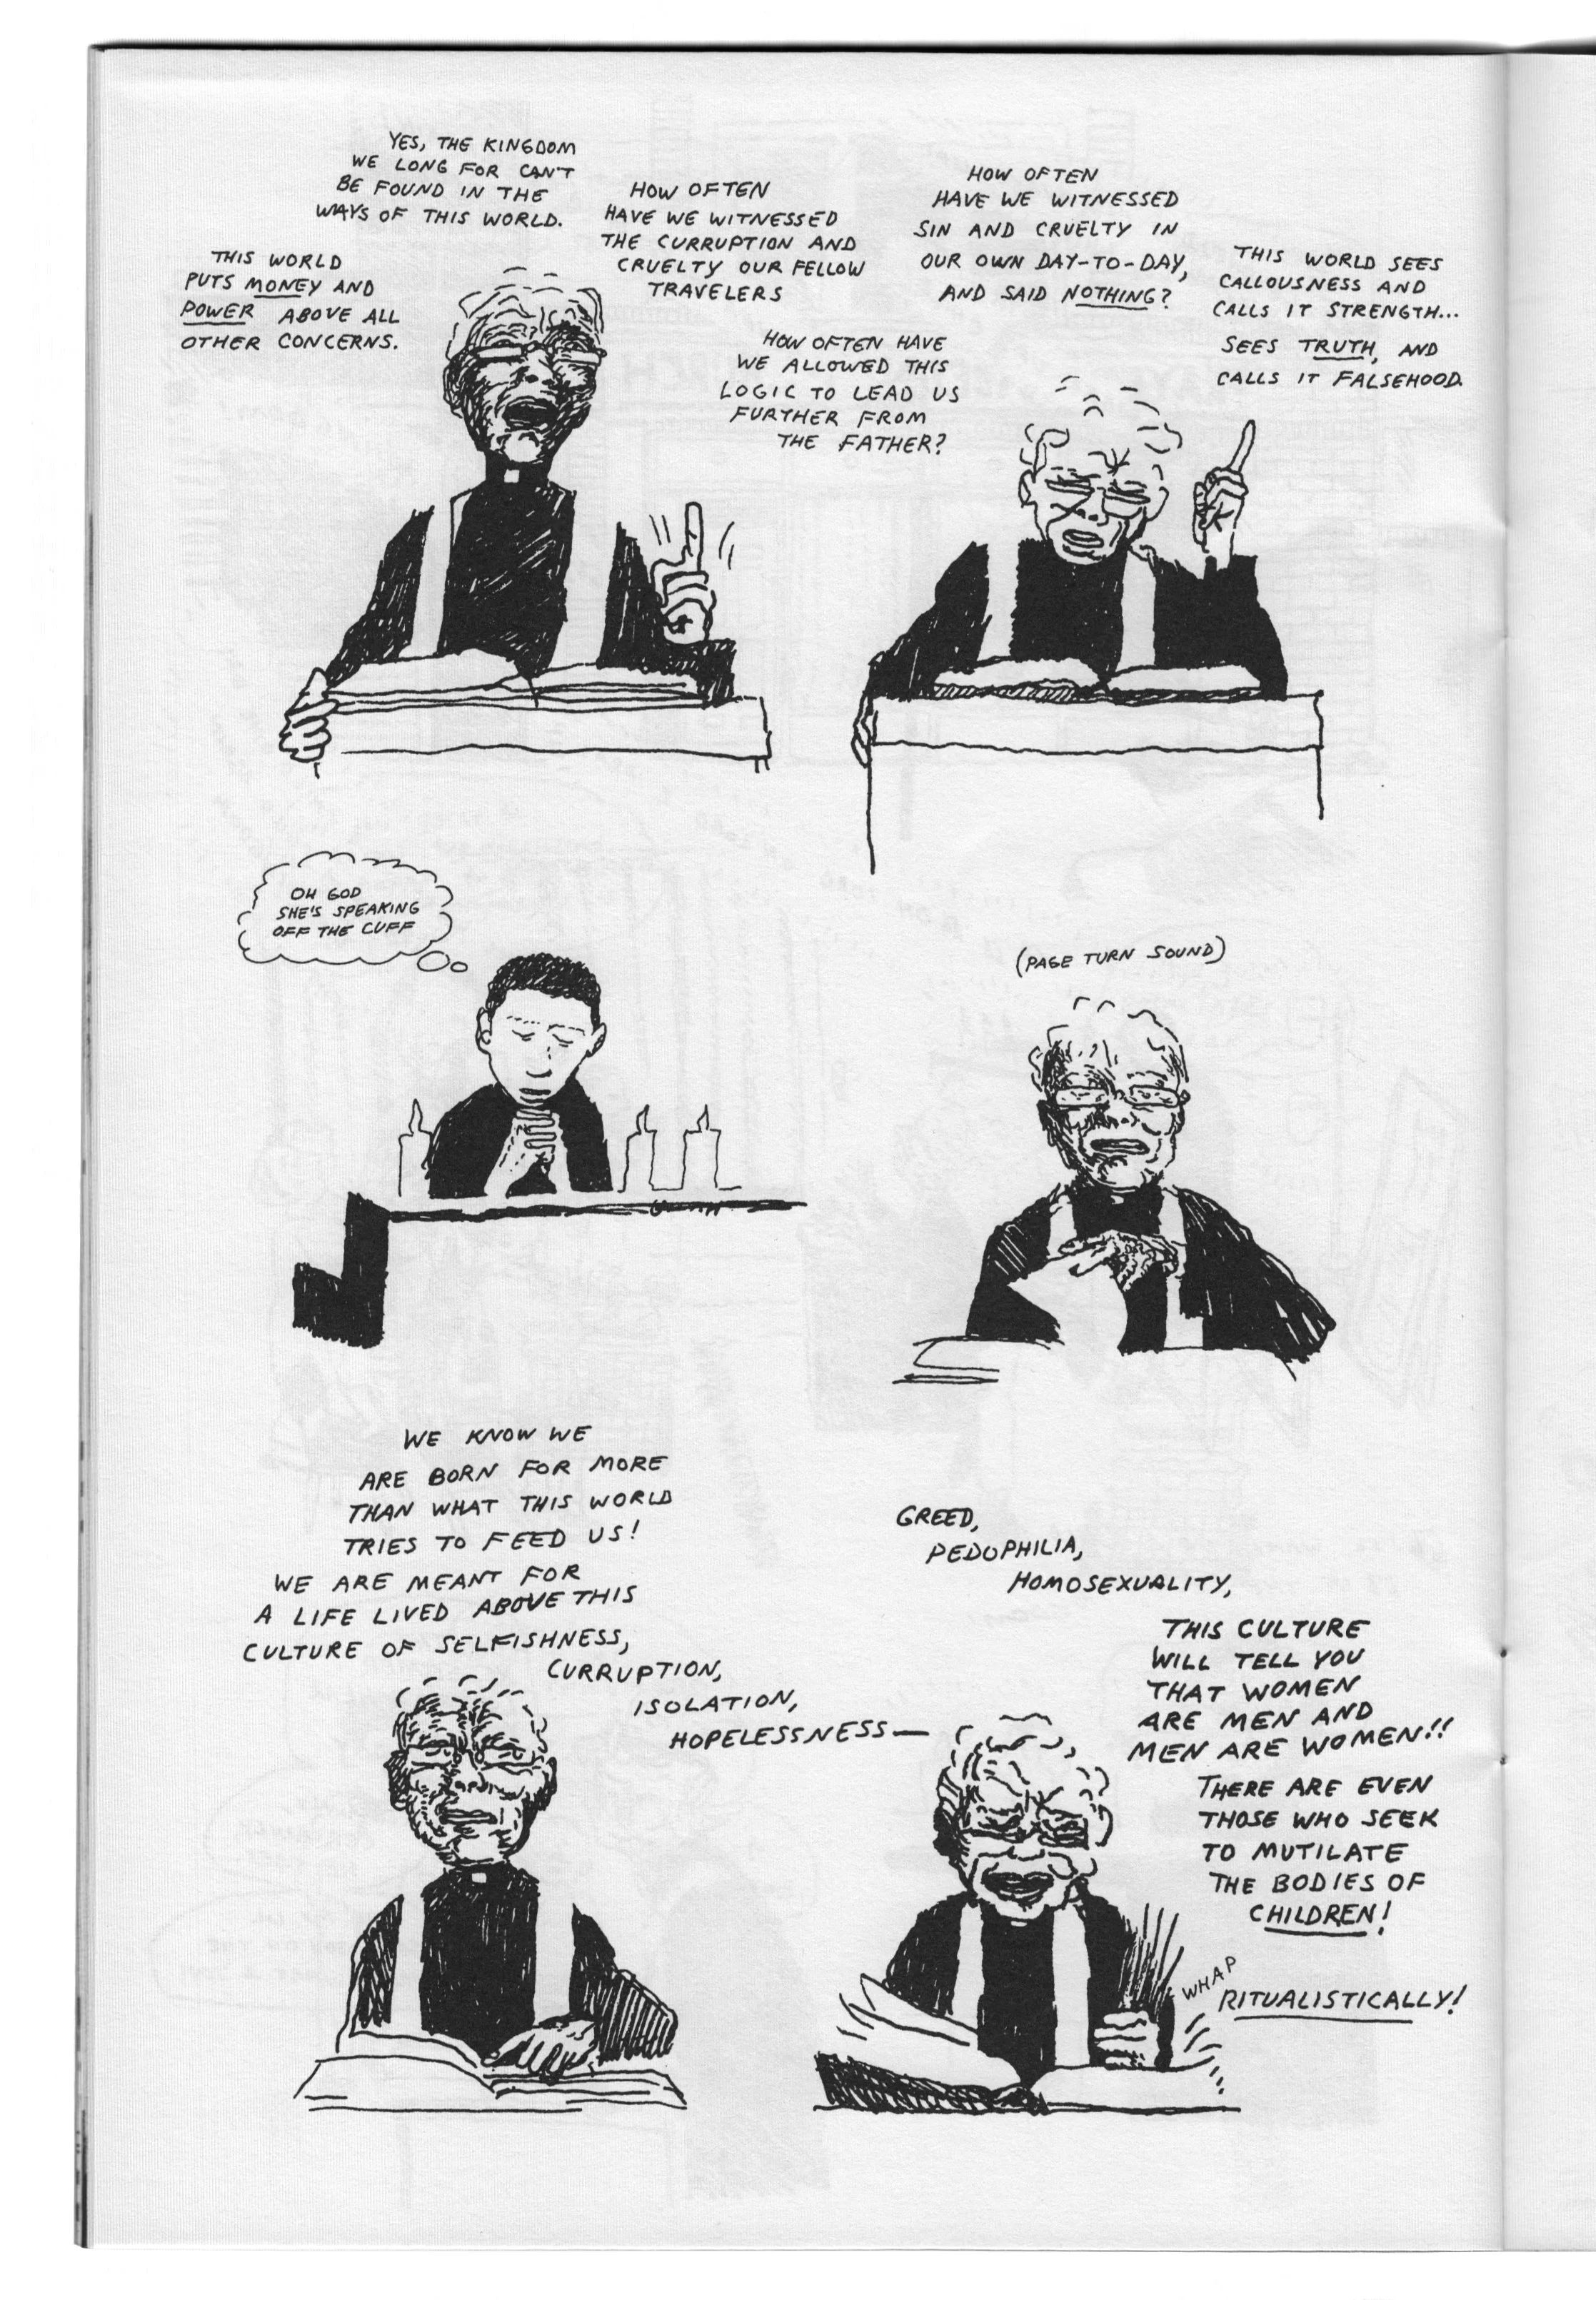 YES, THE KINGDOM
WE LONG FOR CAN'T
BE FOUND IN THE
WAYS OF THIS WORLD.
THIS WORLD
PUTS MONEY AND
POWER ABOVE ALL
OTHER CONCERNS.
HOW OFTEN
HAVE WE WITNESSED
THE CURRUPTION AND
CRUELTY OUR FELLOW
TRAVELERS
HOW OFTEN HAVE
WE ALLOWED THIS
LOGIC TO LEAD US
FURTHER FROM
THE FATHER?
HOW OFTEN
HAVE WE WITNESSED
SIN AND CRUELTY IN
OUR OWN DAY-TO-DAY,
AND SAID NOTHING?
THIS WORLD SEES
CALLOUSNESS AND
CALLS IT STRENGTH...
SEES TRUTH, AND
CALLS IT FALSEHOOD.
OH GOD
SHE'S SPEAKING
OFF THE CUFF
(PAGE TURN SOUND)
WE KNOW WE
ARE BORN FOR MORE
THAN WHAT THIS WORLD
TRIES TO FEED US!
WE ARE MEANT FOR
A LIFE LIVED ABOVE THIS
CULTURE OF SELFISHNESS,
CURRUPTION,
ISOLATION,
HOPELESSNESS—
GREED,
PEDOPHILIA,
HOMOSEXUALITY,
THIS CULTURE
WILL TELL YOU
THAT WOMEN
ARE MEN AND
MEN ARE WOMEN!!
THERE ARE EVEN
THOSE WHO SEEK
TO MUTILATE
THE BODIES OF
CHILDREN!
WHAP
RITUALISTICALLY!